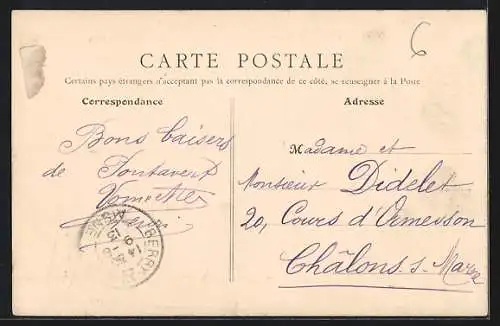 6
CARTE POSTALE
Certains pays étrangers n'acceptant pas la correspondance de ce côté, se renseigner à la Poste
Correspondance
Adresse
Bons baisers
de Pontavert
Madame et
Monsieur Didelet
20, Cours d'Ormesson
Châlons. s. Marne
BERRY-A
AISNE